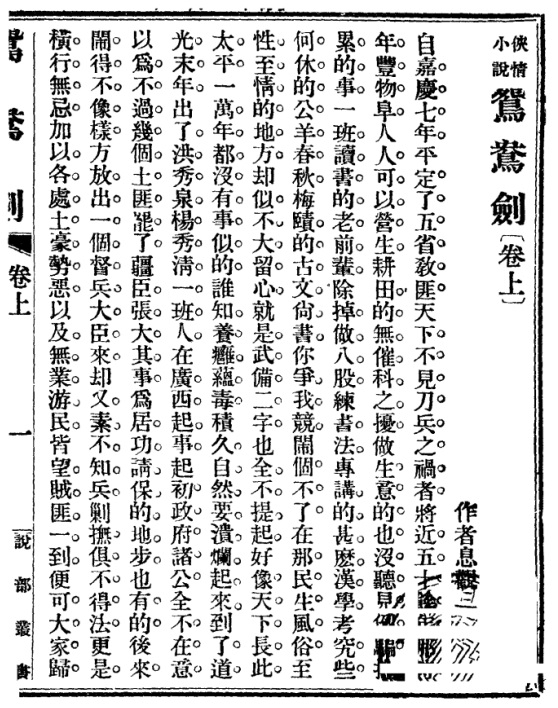 俠情小說 鴛鴦劍 〔卷上〕
作者息觀
自嘉慶七年平定了五省教匪。天下不見刀兵之禍者將近五十
年。豐物阜。人人可以營生。耕田的無催科之擾。做生意的也沒聽見
累的事。一班讀書的老前輩。除掉做八股練書法。專講的甚麽漢學。考究些
何休的公羊春秋。梅賾的古文尙書。你爭我競。鬧個不了。在那民生風俗至
性至情的地方。却似不大留心。就是武備二字。也全不提起。好像天下長此
太平。一萬年都沒有事似的。誰知養癰蘊毒。積久自然要潰爛起來。到了道
光末年。出了洪秀泉楊秀清一班人。在廣西起事。起初政府諸公。全不在意。
以爲不過幾個土匪罷了。疆臣張大其事。爲居功請保的地步也有的。後來
鬧得不像樣。方放出一個督兵大臣來。却又素不知兵。剿撫俱不得法。更是
橫行無忌。加以各處土豪勢惡。以及無業游民。皆望賊匪一到。便可大家歸
鴛鴦劍 卷上 一 說部叢書